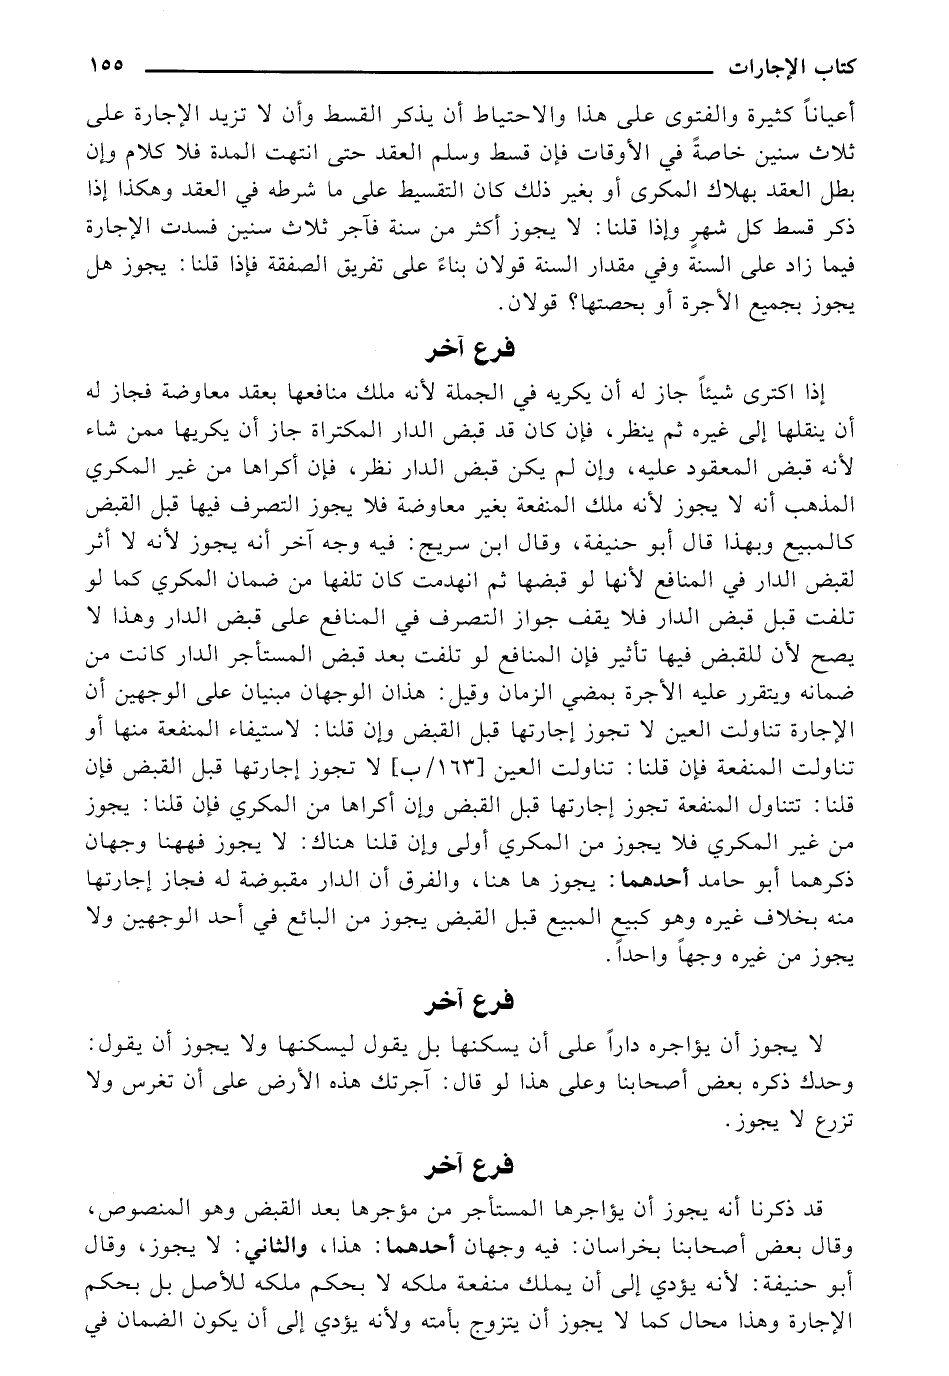 كتاب الإجارات ١٥٥
أعياناً كثيرة والفتوى على هذا والاحتياط أن يذكر القسط وأن لا تزيد الإجارة على
ثلاث سنين خاصةً في الأوقات فإن قسط وسلم العقد حتى انتهت المدة فلا كلام وإن
بطل العقد بهلاك المكرى أو بغير ذلك كان التقسيط على ما شرطه في العقد وهكذا إذا
ذكر قسط كل شهرٍ وإذا قلنا: لا يجوز أكثر من سنة فآجر ثلاث سنين فسدت الإجارة
فيما زاد على السنة وفي مقدار السنة قولان بناءً على تفريق الصفقة فإذا قلنا: يجوز هل
يجوز بجميع الأجرة أو بحصتها؟ قولان.
فرع آخر
إذا اكترى شيئاً جاز له أن يكريه في الجملة لأنه ملك منافعها بعقد معاوضة فجاز له
أن ينقلها إلى غيره ثم ينظر، فإن كان قد قبض الدار المكتراة جاز أن يكريها ممن شاء
لأنه قبض المعقود عليه، وإن لم يكن قبض الدار نظر، فإن أكراها من غير المكري
المذهب أنه لا يجوز لأنه ملك المنفعة بغير معاوضة فلا يجوز التصرف فيها قبل القبض
كالمبيع وبهذا قال أبو حنيفة، وقال ابن سريج: فيه وجه آخر أنه يجوز لأنه لا أثر
لقبض الدار في المنافع لأنها لو قبضها ثم انهدمت كان تلفها من ضمان المكري كما لو
تلفت قبل قبض الدار فلا يقف جواز التصرف في المنافع على قبض الدار وهذا لا
يصح لأن للقبض فيها تأثير فإن المنافع لو تلفت بعد قبض المستأجر الدار كانت من
ضمانه ويتقرر عليه الأجرة بمضي الزمان وقيل: هذان الوجهان مبنيان على الوجهين أن
الإجارة تناولت العين لا تجوز إجارتها قبل القبض وإن قلنا: لاستيفاء المنفعة منها أو
تناولت المنفعة فإن قلنا: تناولت العين [١٦٣/ب] لا تجوز إجارتها قبل القبض فإن
قلنا: تتناول المنفعة تجوز إجارتها قبل القبض وإن أكراها من المكري فإن قلنا: يجوز
من غير المكري فلا يجوز من المكري أولى وإن قلنا هناك: لا يجوز فههنا وجهان
ذكرهما أبو حامد أحدهما: يجوز ها هنا، والفرق أن الدار مقبوضة له فجاز إجارتها
منه بخلاف غيره وهو كبيع المبيع قبل القبض يجوز من البائع في أحد الوجهين ولا
يجوز من غيره وجهاً واحداً.
فرع آخر
لا يجوز أن يؤاجره داراً على أن يسكنها بل يقول ليسكنها ولا يجوز أن يقول:
وحدك ذكره بعض أصحابنا وعلى هذا لو قال: آجرتك هذه الأرض على أن تغرس ولا
تزرع لا يجوز.
فرع آخر
قد ذكرنا أنه يجوز أن يؤاجرها المستأجر من مؤجرها بعد القبض وهو المنصوص،
وقال بعض أصحابنا بخراسان: فيه وجهان أحدهما: هذا، والثاني: لا يجوز، وقال
أبو حنيفة: لأنه يؤدي إلى أن يملك منفعة ملكه لا بحكم ملكه للأصل بل بحكم
الإجارة وهذا محال كما لا يجوز أن يتزوج بأمته ولأنه يؤدي إلى أن يكون الضمان في